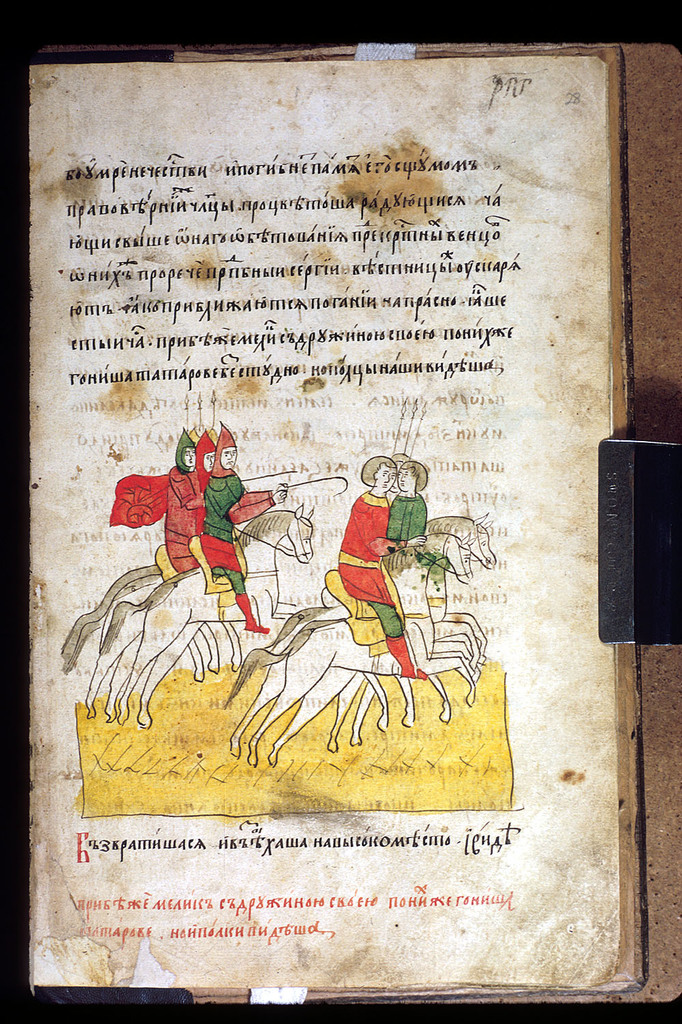 рпг
28
бо умре нечестⷭ҇тви и погибне памѧ его съ шумомъ
правовѣрнїи члцы процвѣтоша радующисѧ ча
ющи свыше ѡнаго ѡбѣтованїѧ прекрⷭ҇тны венцо
ѡ нихъ прорече прпⷣбныи сергїи вѣстницы ѹскарѧ
ютъ ꙗко приближаютсѧ поганїи напрасно
сты и чⷭ҇а прибѣже мели съ дружиною своею по нихже
гониша татарове бестудно но полцы наши видѣша
Възвратишасѧ и въѣхаша на высоко мѣсто и видѣ
прибѣже меликъ съ дружиною своею по ниⷯже гониша
татарове но и полки видѣша